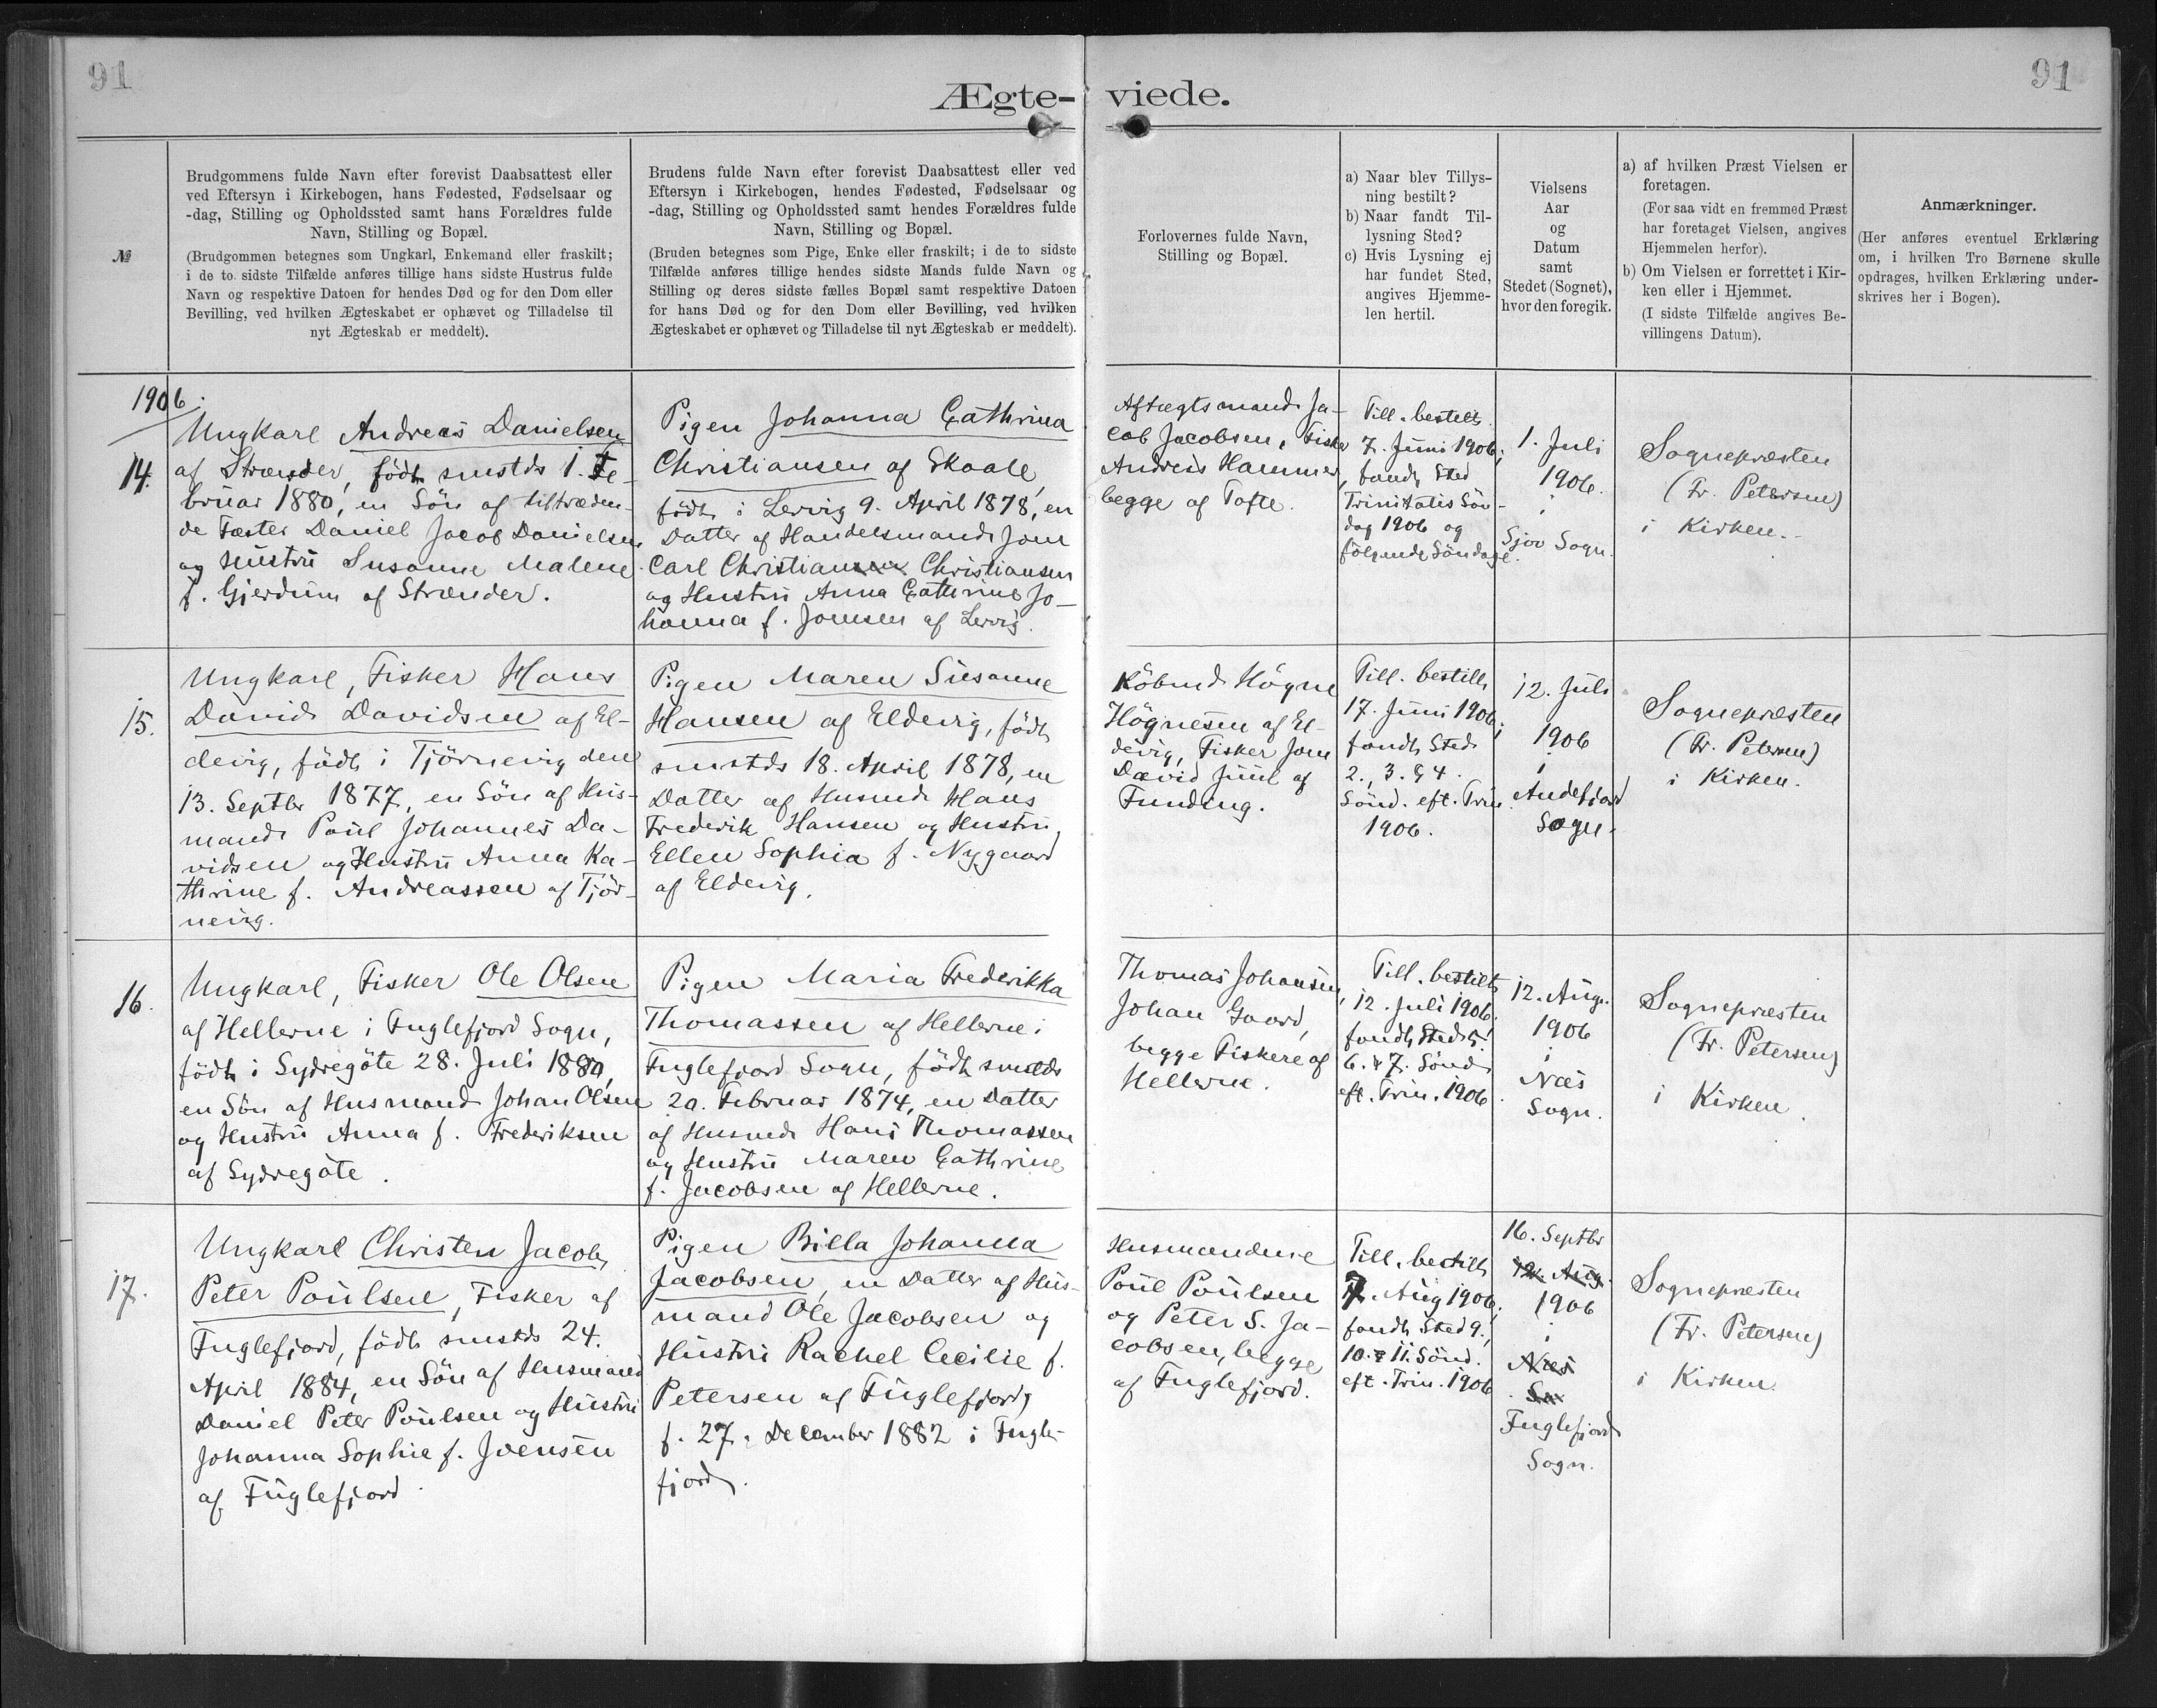 91
Ægte-
viede.
91
№
Brudgommens fulde Navn efter forevist Daabsattest eller
ved Eftersyn i Kirkebogen, hans Fødested, Fødselsaar og
-dag, Stilling og Opholdssted samt hans Forældres fulde
Navn, Stilling og Bopæl.
(Brudgommen betegnes som Ungkarl, Enkemand eller fraskilt;
i de to sidste Tilfælde anføres tillige hans sidste Hustrus fulde
Navn og respektive Datoen for hendes Død og for den Dom eller
Bevilling, ved hvilken Ægteskabet er ophævet og Tilladelse til
nyt Ægteskab er meddelt).
Brudens fulde Navn efter forevist Daabsattest eller ved
Eftersyn i Kirkebogen, hendes Fødested, Fødselsaar og
-dag, Stilling og Opholdssted samt hendes Forældres fulde
Navn, Stilling og Bopæl.
(Bruden betegnes som Pige, Enke eller fraskilt; i de to sidste
Tilfælde anføres tillige hendes sidste Mands fulde Navn og
Stilling og deres sidste fælles Bopæl samt respektive Datoen
for hans Død og for den Dom eller Bevilling, ved hvilken
Ægteskabet er ophævet og Tilladelse til nyt Ægteskab er meddelt).
Forlovernes fulde Navn,
Stilling og Bopæl.
a) Naar blev Tillys-
ning bestilt?
b) Naar fandt Til-
lysning Sted?
c) Hvis Lysning ej
har fundet Sted,
angives Hjemme-
len hertil.
Vielsens
Aar
og
Datum
samt
Stedet (Sognet),
hvor den foregik.
a) af hvilken Præst Vielsen er
foretagen.
(For saa vidt en fremmed Præst
har foretaget Vielsen, angives
Hjemmelen herfor).
b) Om Vielsen er forrettet i Kir-
ken eller i Hjemmet.
(I sidste Tilfælde angives Be-
villingens Datum).
Anmærkninger.
(Her anføres eventuel Erklæring
om, i hvilken Tro Børnene skulle
opdrages, hvilken Erklæring under-
skrives her i Bogen).
1906.
14.
Ungkarl Andreas Danielsen
af Strænder, født smstds 1. Fe-
bruar 1880, en Søn af tiltræden-
de Fæster Daniel Jacob Danielsen
og Hustru Susanne Malene
f. Gjerdum af Strænder.
Pigen Johanna Cathrina
Christiansen af Skaale,
født i Lervig 9. April 1878, en
Datter af Handelsmand Jom
Carl Christiansen Christiansen
og Hustru Anna Cathrine Jo-
hanna f. Joensen af Lervig.
Aftægtsmand Ja-
cob Jacobsen, Fisker
Andreas Hammer,
begge af Tofte.
Till. bestilt
7. Juni 1906;
fandt Sted
Trinitatis Søn-
dag 1906 og
følgende Søndage.
1. Juli
1906.
i
Sjov Sogn.
Sognepræsten
(Fr. Petersen)
i Kirken.
15.
Ungkarl, Fisker Hans
David Davidsen af El-
devig, født i Tjörnevig den
13. Septbr 1877, en Søn af Hus-
mand Poul Johannes Da-
vidsen og Hustru Anna Ka-
thrine f. Andreassen af Tjör-
nevig.
Pigen Maren Susanne
Hansen af Eldevig, født
smstds 18. April 1878, en
Datter af Husmd Hans
Frederik Hansen og Hustru
Ellen Sophia f. Nygaard
af Eldevig.
Köbmd Högne
Högnesen af El-
devig, Fisker Jom
David Juul af
Funding.
Till. bestilt
17. Juni 1906;
fandt Sted
2., 3. & 4.
Sönd. eft. Trin.
1906.
12. Juli
1906
i
Andefjord
Sogn.
Sognepræsten
(Fr. Petersen)
i Kirken.
16.
Ungkarl, Fisker Ole Olsen
af Hellerne i Fuglefjord Sogn,
født i Sydregöte 28. Juli 1880,
en Søn af Husmand Johan Olsen
og Hustru Anna f. Frederiksen
af Sydregöte.
Pigen Maria Frederikka
Thomassen af Hellerne i
Fuglefjord Sogn, født smstds
20. Februar 1874, en Datter
af Husmd Hans Thomassen
og Hustru Maren Cathrine
f. Jacobsen af Hellerne.
Thomas Johansen,
Johan Gaard,
begge Fiskere af
Hellerne.
Till. bestilt
12. Juli 1906.
fandt Sted 5.
6. & 7. Sönd.
eft. Trin. 1906.
12. Aug.
1906
i
Næs
Sogn.
Sognepræsten
(Fr. Petersen)
i Kirken.
17.
Ungkarl Christen Jacob
Peter Poulsen, Fisker af
Fuglefjord, født smstds 24.
April 1884, en Søn af Husmand
Daniel Peter Poulsen og Hustru
Johanna Sophie f. Joensen
af Fuglefjord.
Pigen Billa Johanna
Jacobsen, en Datter af Hus-
mand Ole Jacobsen og
Hustru Rachel Cecilie f.
Petersen af Fuglefjord,
f. 27. December 1882 i Fugle-
fjord.
Husmændene
Poul Poulsen
og Peter S. Ja-
cobsen, begge
af Fuglefjord.
Till. bestilt
7. Aug 1906;
fandt Sted 9.,
10. & 11. Sönd.
eft. Trin. 1906
16. Septbr
12. Aug.
1906
i
Næs
So
Fuglefjord
Sogn.
Sognepræsten
(Fr. Petersen)
i Kirken.